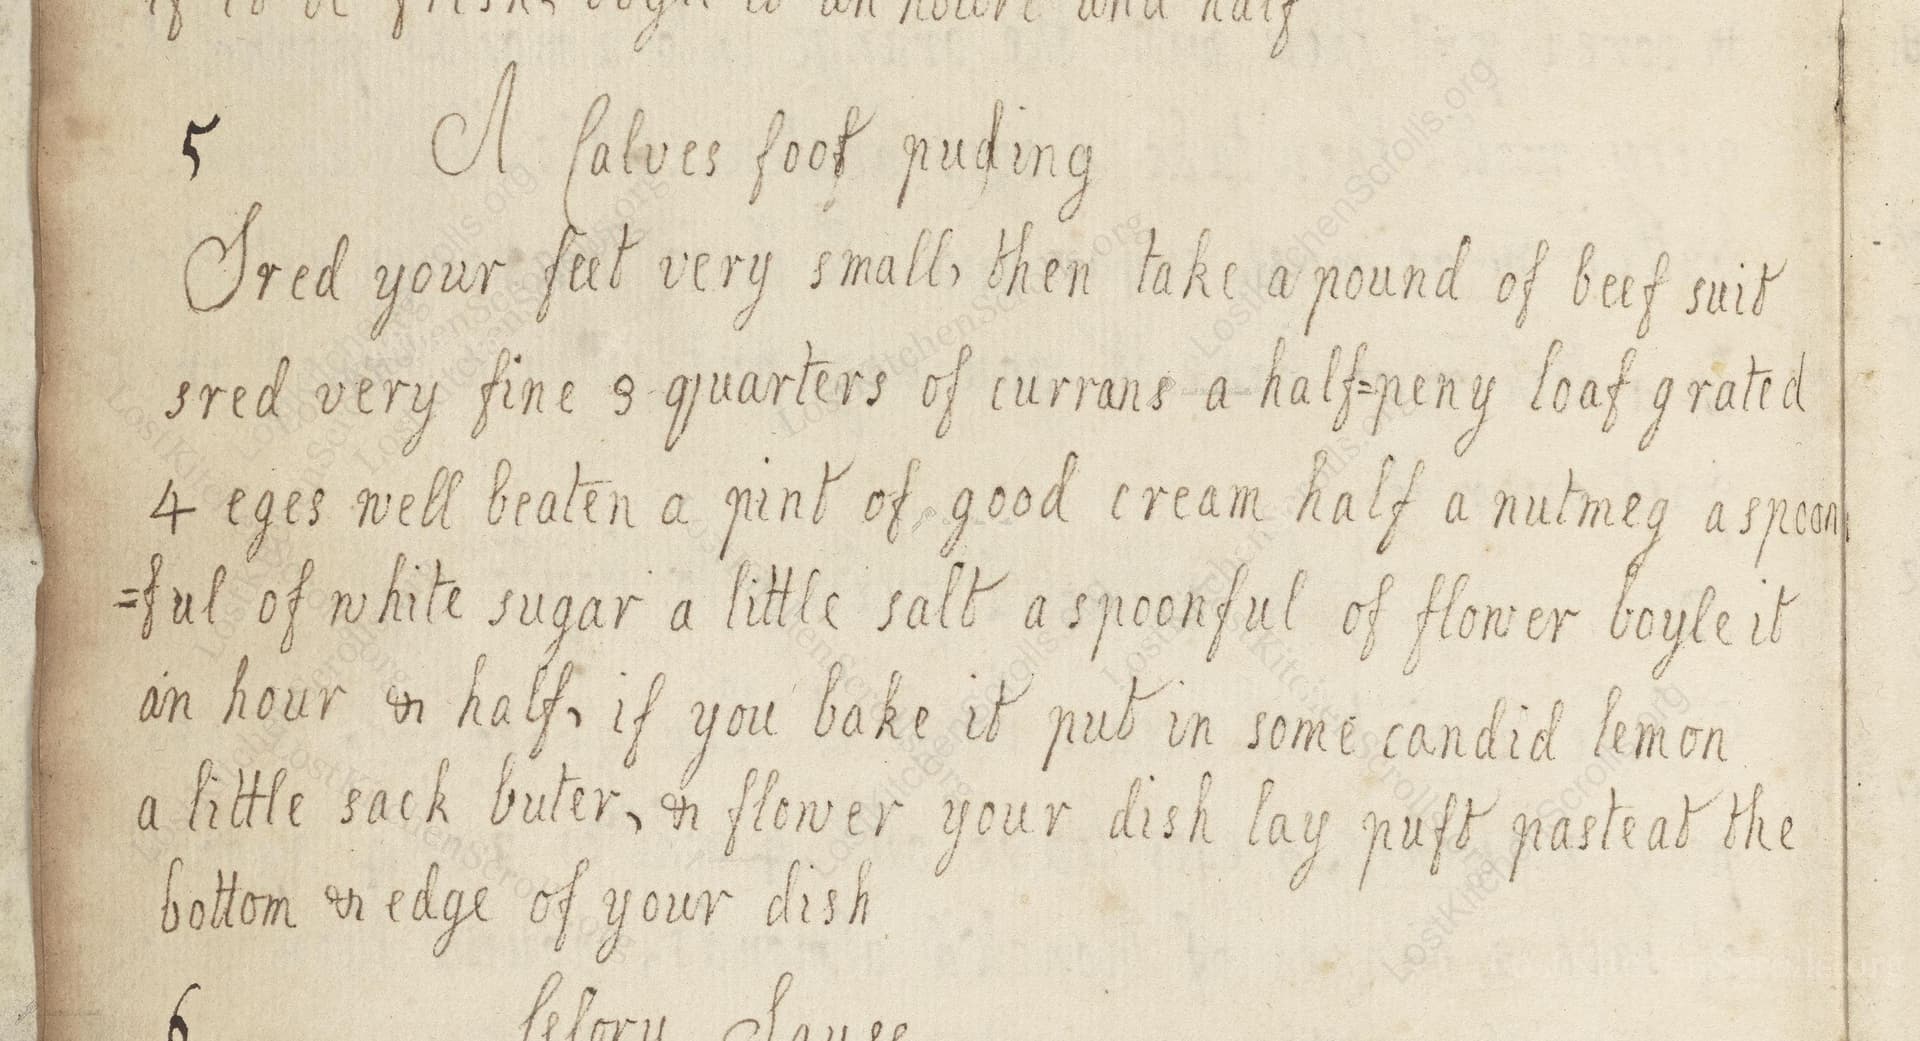 if to be fresh, boyle it an houre and half
5 A Calves foot puding
Sred your feet very small, then take a pound of beef suit
sred very fine 3 quarters of currans a half=peny loaf grated
4 eges well beaten a pint of good cream half a nutmeg a spoon
=ful of white sugar a little salt a spoonful of flower boyle it
an hour & half, if you bake it put in some candid lemon
a little sack buter, & flower your dish lay puft paste at the
bottom & edge of your dish
6 Selory Sauce